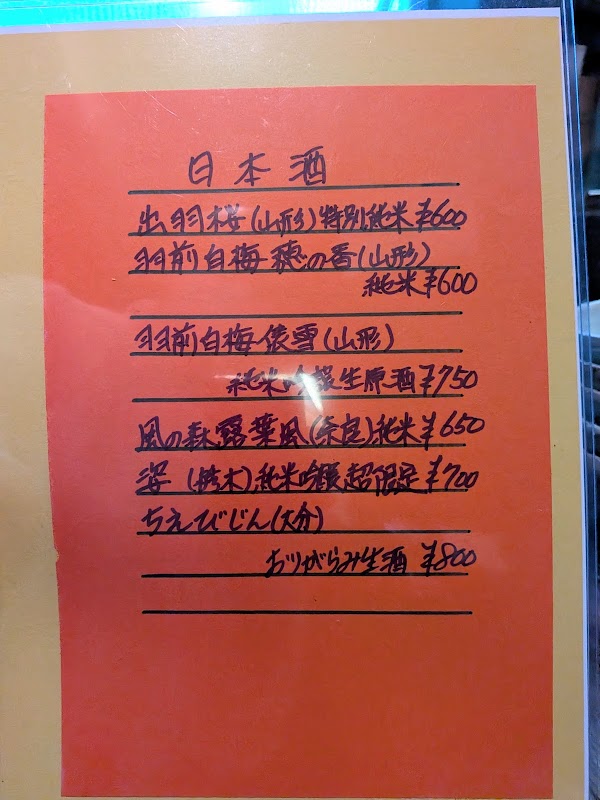 日本酒
出羽桜(山形)特別純米¥600
羽前白梅 穂の香(山形)
純米¥600
羽前白梅 俵雪(山形)
純米吟醸生原酒¥750
風の森 露葉風(奈良)純米¥650
姿 (栃木)純米吟醸超限定¥700
ちえびじん(大分)
おりがらみ生酒 ¥800